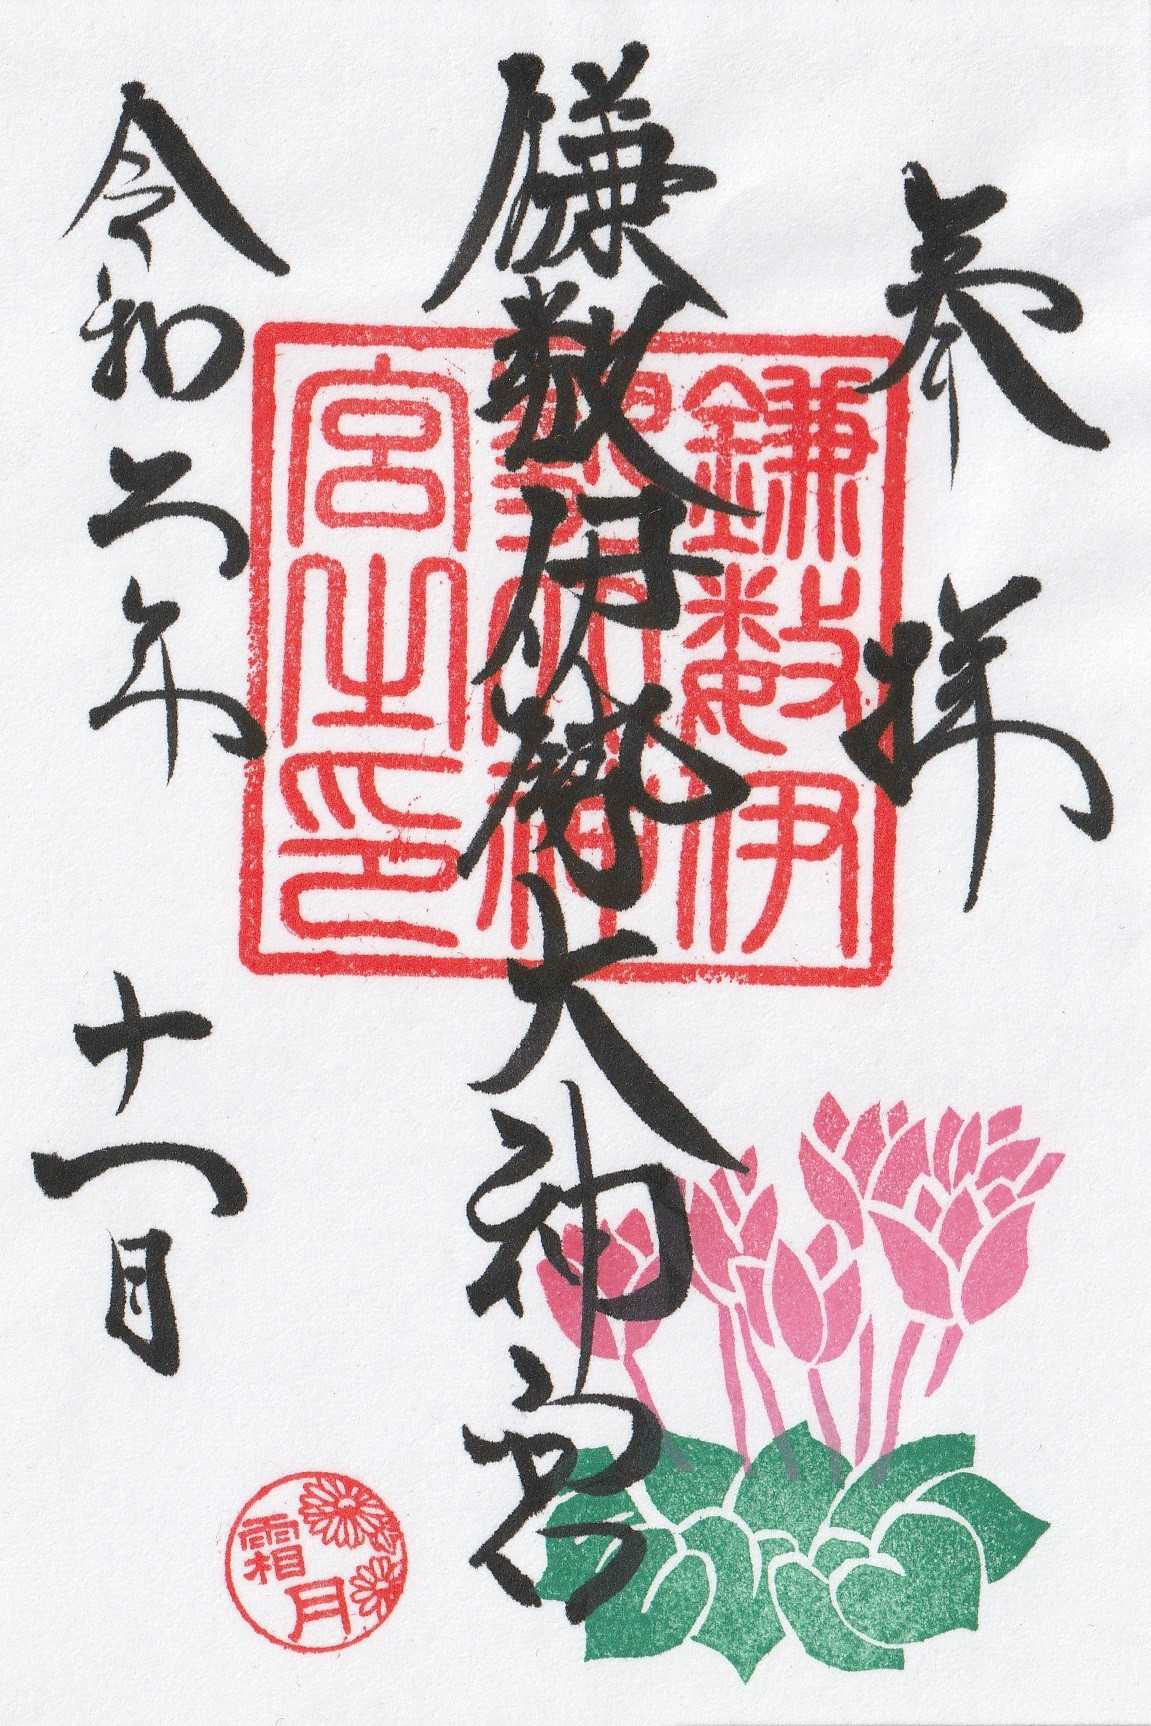 奉拝
鎌数伊勢大神宮
令和二年 十一月
鎌数伊
勢大神
宮之印
霜月